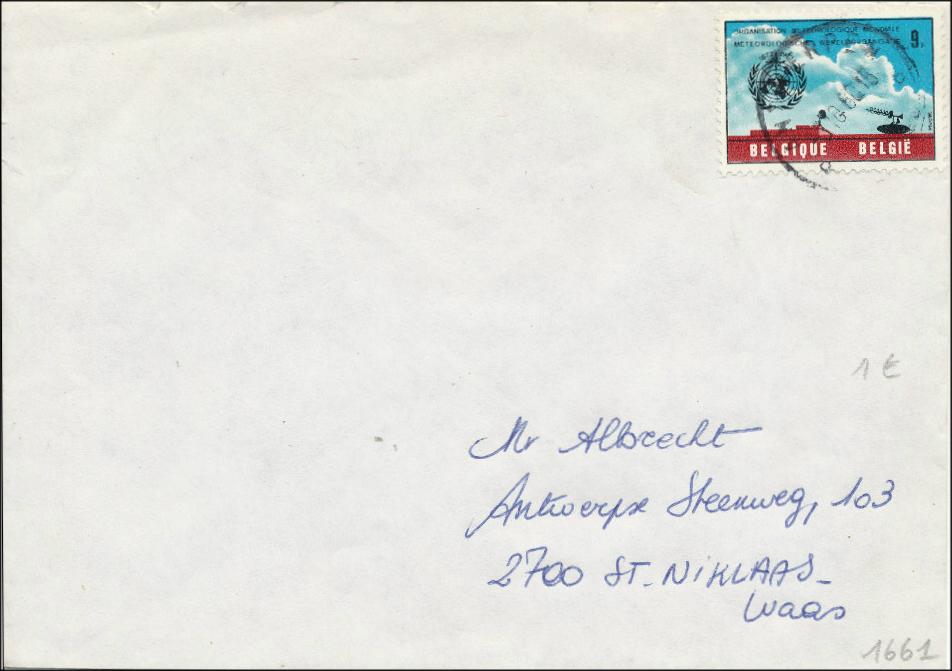 ORGANISATION METEOROLOGIQUE MONDIALE
METEOROLOGISCHE WERELDORGANISATIE
9F
BELGIQUE BELGIË
1 €
Mr Albrecht
Antwerpse Steenweg, 103
2700 ST. NIKLAAS-
Waas
1661